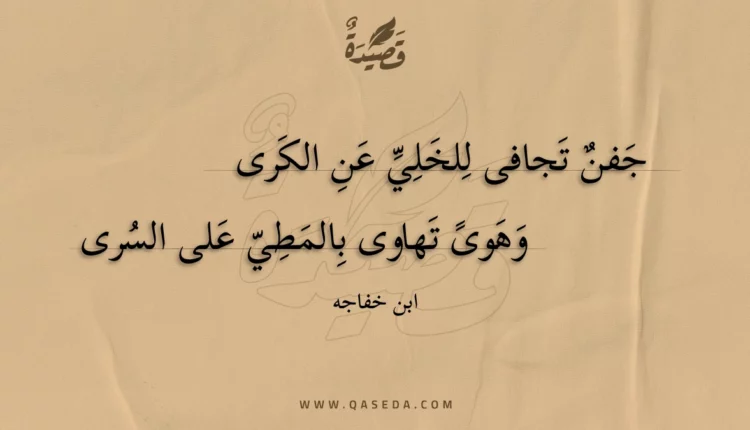 قَصِيدَةٌ
جَفنٌ تَجافى لِلخَلِيِّ عَنِ الكَرى
وَهَوىً تَهاوى بِالمَطِيّ عَلى السُرى
ابن خفاجه
WWW.QASEDA.COM